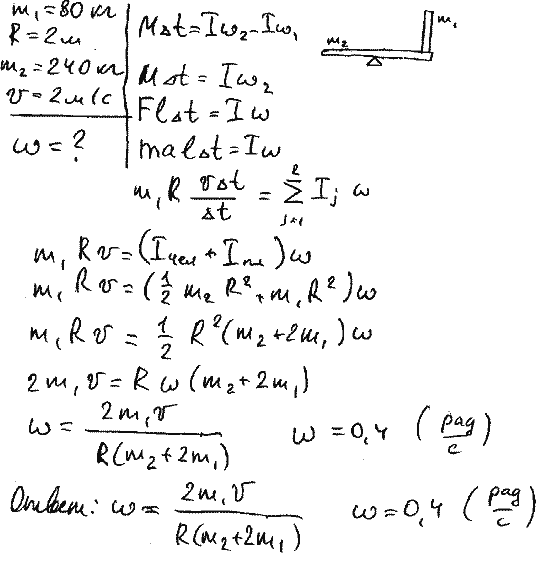 m₁=80 кг
R=2м
m₂=240 кг
v=2м/с
ω=?
MΔt=Iω₂-Iω₁
MΔt=Iω₂
FlΔt=Iω
malΔt=Iω
m₁ m₂
m₁R vΔt/Δt = Σ(j=1..2) Iⱼ ω
m₁Rv=(Iчел+Iпл)ω
m₁Rv=(1/2 m₂R²+m₁R²)ω
m₁Rv=1/2 R²(m₂+2m₁)ω
2m₁v=Rω(m₂+2m₁)
ω=2m₁v/R(m₂+2m₁) ω=0,4 (рад/с)
Ответ: ω=2m₁v/R(m₂+2m₁) ω=0,4 (рад/с)